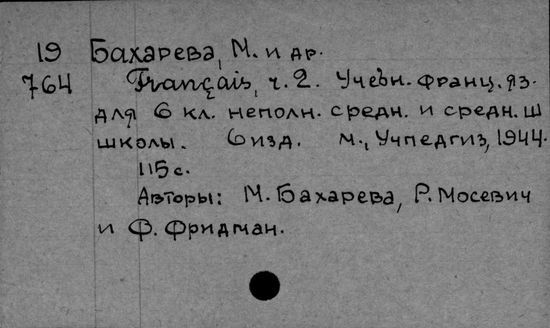 19 Бахарева, М. и др.
764 Français, ч. 2. Учебн. франц. яз.
для 6 кл. неполн. средн. и средн. ш
школы. 6 изд. М., Учпедгиз, 1944.
115 с.
Авторы: М. Бахарева, Р. Мосевич
и Ф. Фридман.